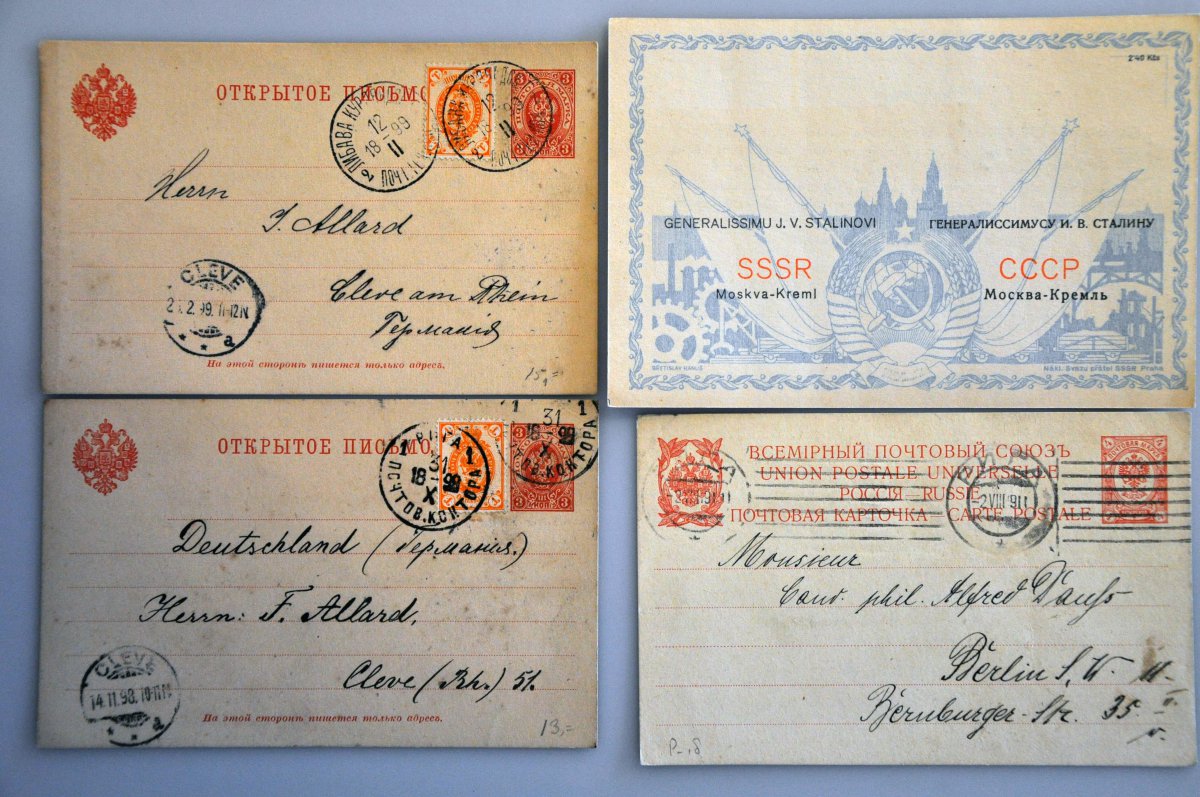 ОТКРЫТОЕ ПИСЬМО
3 3
2 ЛИБАВА КУР
12
18 99
II
ПОЧТ.
12
18 99
II
Herrn
J. Allard
Cleve am Rhein
Германія
CLEVE
2. 2. 99. 11-12N.
* * a
На этой сторонѣ пишется только адресъ.
15,=
2'40 Kčs
GENERALISSIMU J. V. STALINOVI
ГЕНЕРАЛИССИМУСУ И. В. СТАЛИНУ
SSSR
СССР
Moskva-Kreml
Москва-Кремль
BŘETISLAV HANUŠ
Nákl. Svazu přátel SSSR Praha
ОТКРЫТОЕ ПИСЬМО
1 1
31
18 98
X
ПОЧТОВ. КОНТОРА
1 1
31
18 98
X
ОВ. КОНТОРА
Deutschland (Германия.)
Herrn: F. Allard,
Cleve (Rh.) 51.
CLEVE
14.11.98. 10-11N
* * a
На этой сторонѣ пишется только адресъ.
13,=
ВСЕМІРНЫЙ ПОЧТОВЫЙ СОЮЗЪ
UNION POSTALE UNIVERSELLE
РОССІЯ RUSSIE
ПОЧТОВАЯ КАРТОЧКА CARTE POSTALE
4 4
-2 VIII 911
Monsieur
Cand. phil. Alfred
Berlin S. W. 11
Bernburger-Str. 35